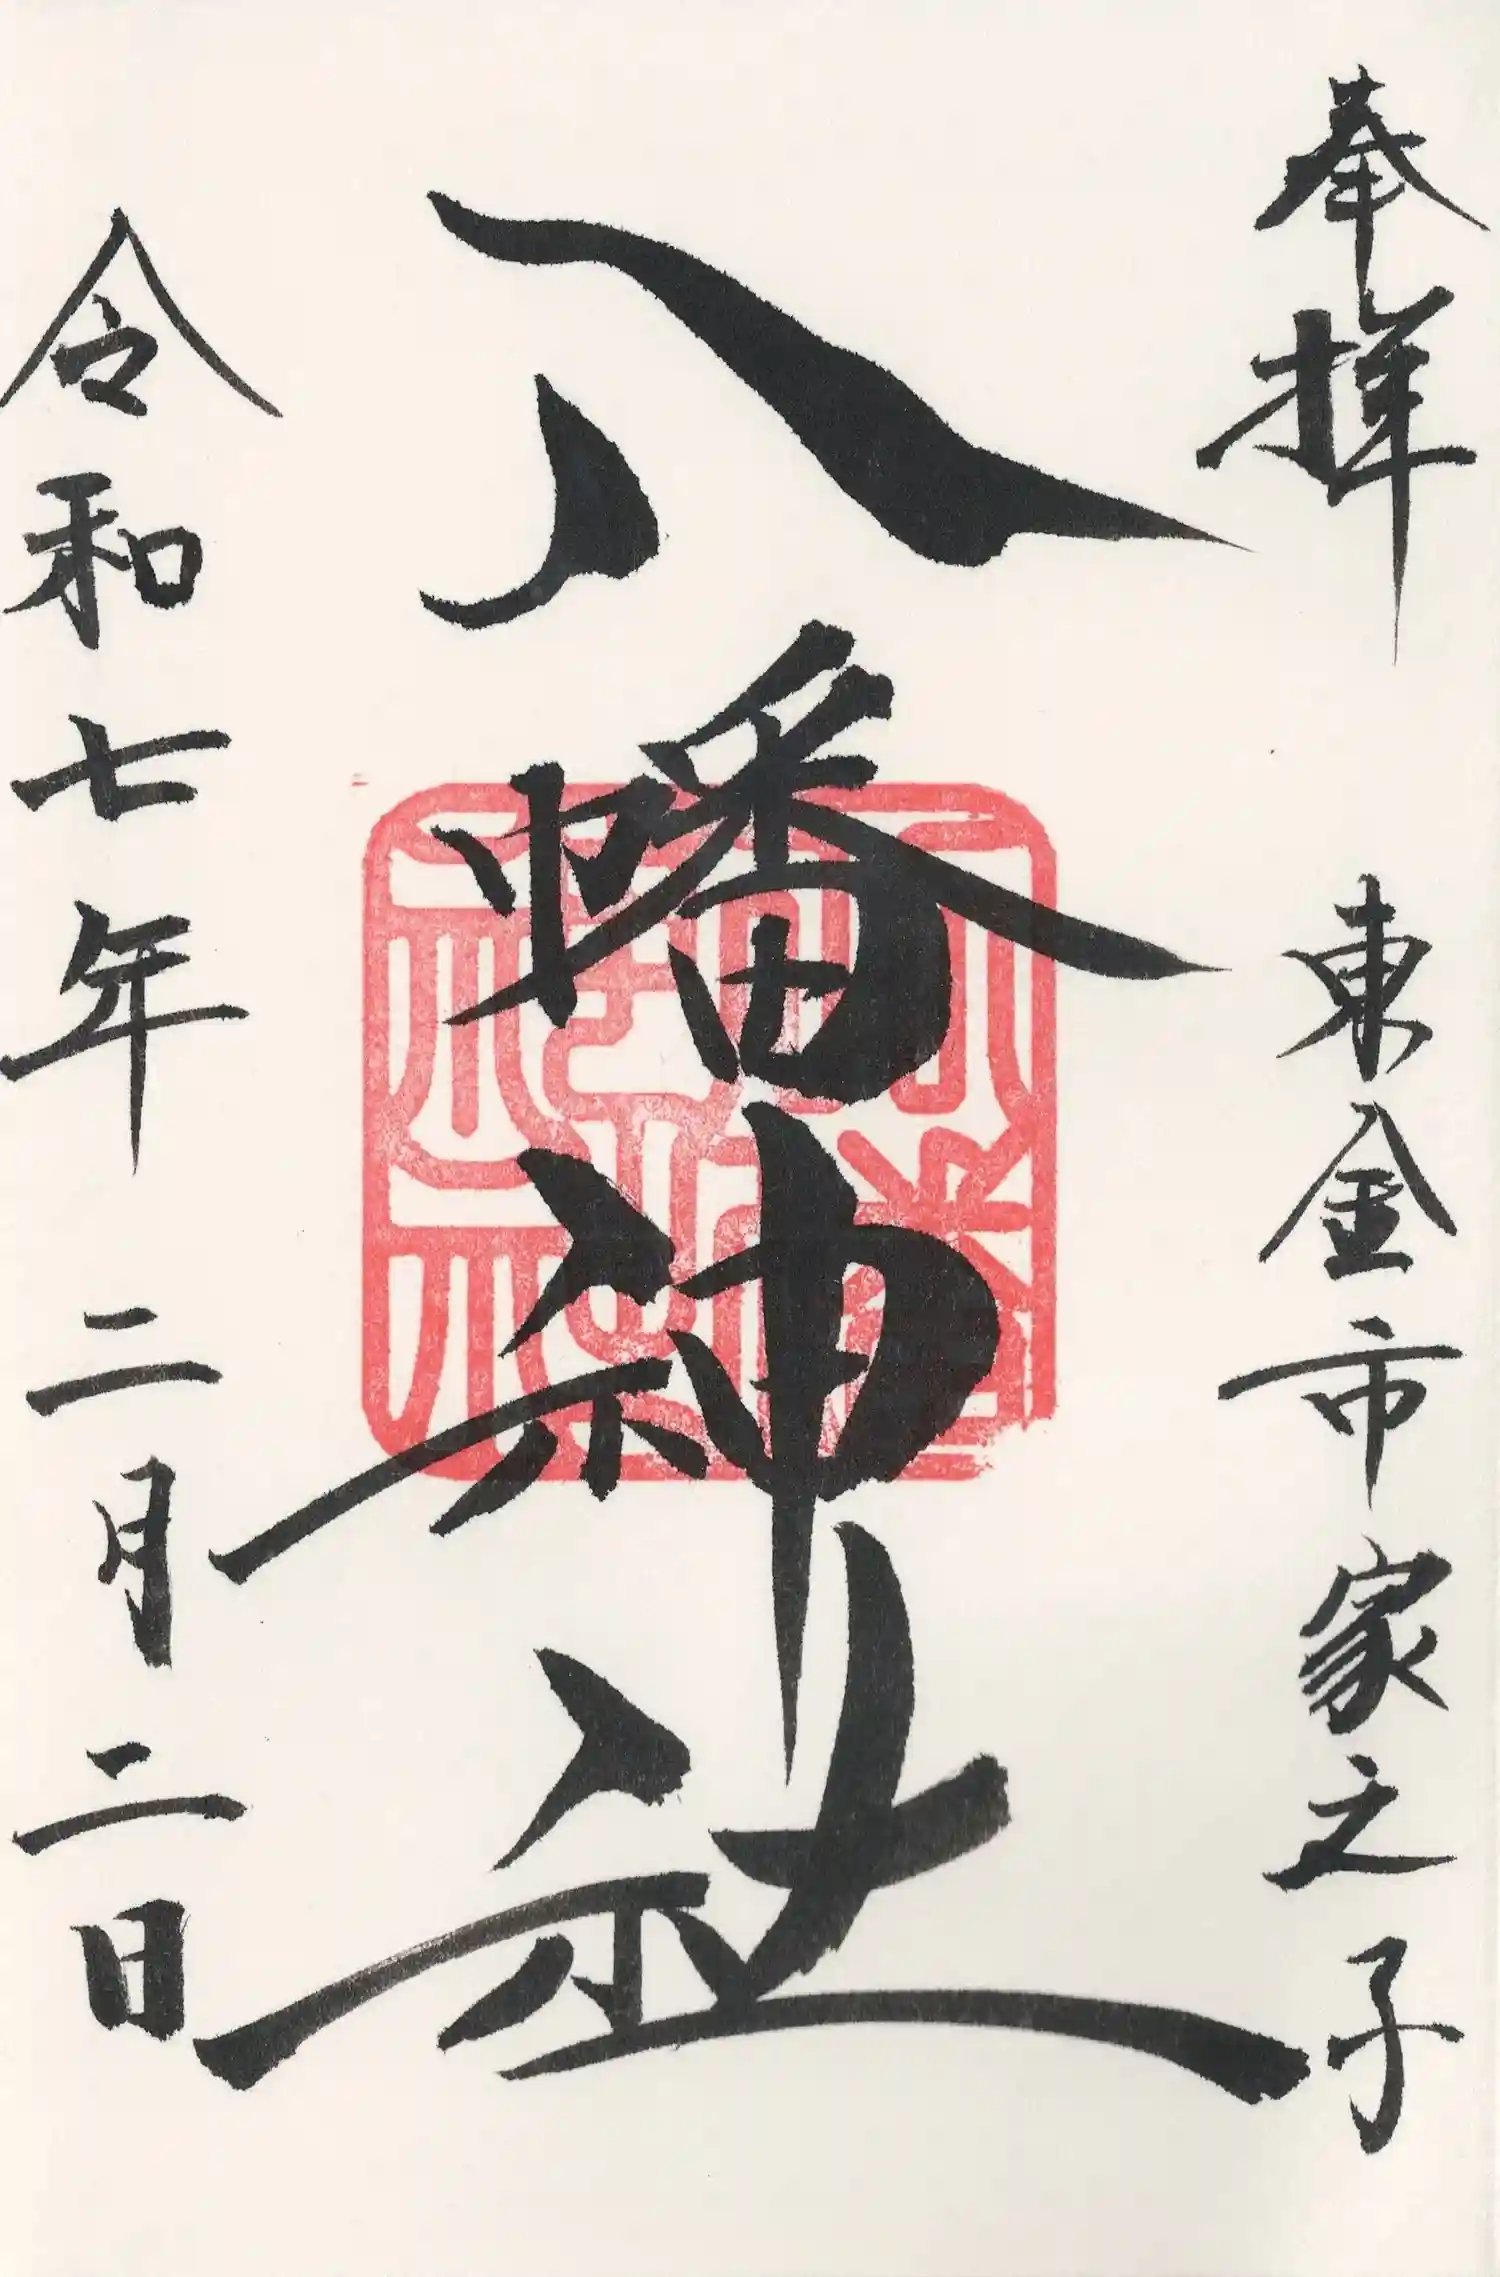 奉拝　東金市家之子
八幡神社
令和七年二月二日